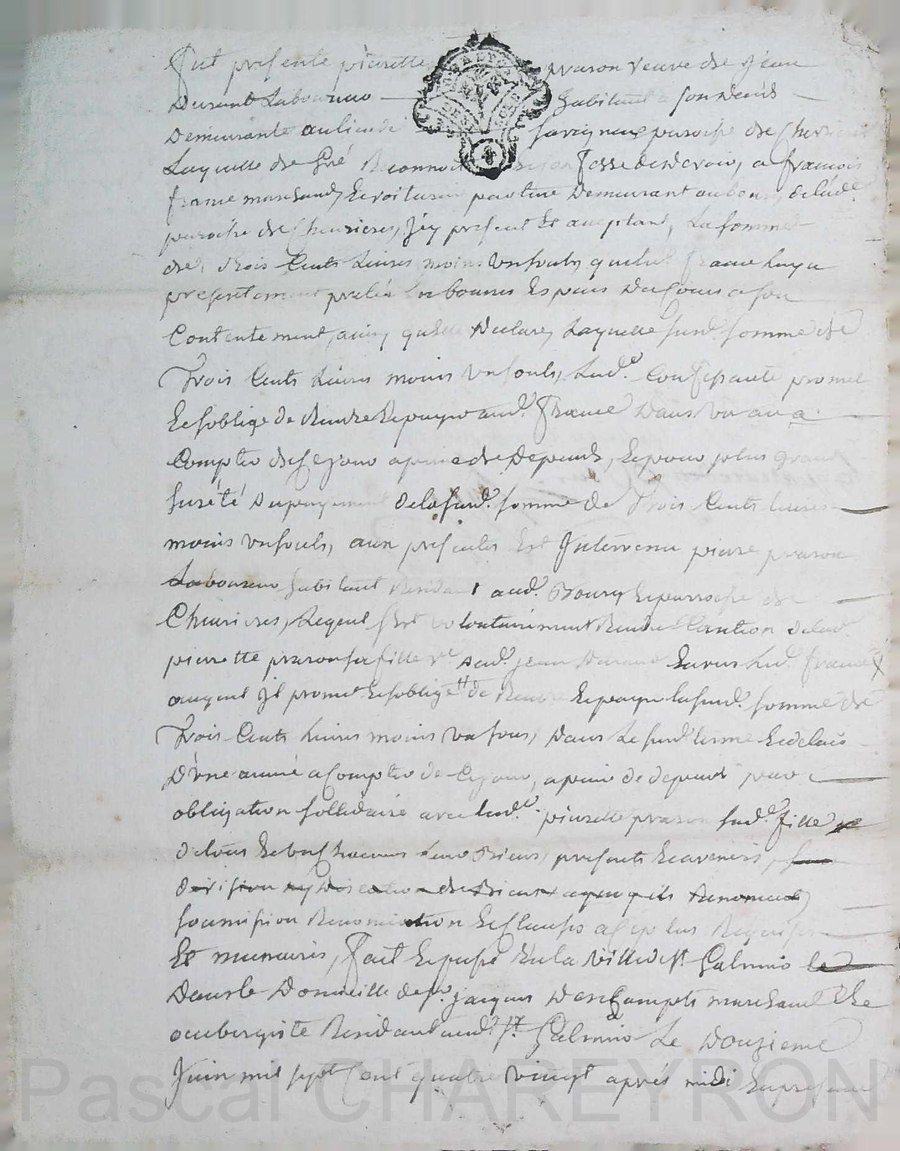 Fut presente pierrette prason veuve de jean
Durant Laboureur habitant a son deces
Demeurante au lieu de Savigneu paroisse de Chevrieres
Laquelle de gré Reconnoit devoir, a francois
france marchand, et voiturier par terre Demeurant au bourg de lad.e
paroisse de Chevrieres, jcy present Et aceptant, La somme
de, trois Cents Livres moins un sould, que led.t france luy a
presentement pretée En bonnes Especes Du Cours a son
Contentement, ainsy qu'elle Declare, Laquelle susd.e somme de
Trois Cents Livres moins un sould, Lad.e Confessante promet
Et soblige de Rendre Et payer aud.t france Dans un an a
Compter de ce jour a peine de Depends, Et pour plus grande
sureté Du payement de la susd.e somme de Trois Cents livres
moins un sould, aux presentes Est Intervenu pierre prason
Laboureur habitant Residant aud.t Bourg Et parroisse de
Chevrieres, Lequel sest volontairement Rendu Caution de lad.e
pierrette prason sa fille v.e Dud.t jean Durand Envers Led.t france
auquel jl promet Et soblige de Rendre Et payer la susd.e somme de
Trois Cents Livres moins un sous, Dans Le susd.t terme Et delais
D'une année a Compter de Ce jour, a peine de depends pour
obligation sollidaire avec lad.e pierrette prason sad.e fille
de tous Et un Chacuns Leurs Biens, presents Et avenirs,
division Discution de Biens a quoy ils Renoncent
soumission Renonciation Et Clauses a ce plus Requises
Et necessaires, Fait Et passé En la ville de S.t Galmier
Dans le Domicille de s.r jacques Deschampts marchand
aubergiste Residant aud.t S.t Galmier Le Douzieme
Juin mil sept Cent quatre vingt après midi En presence
Pascal CHAREYRON